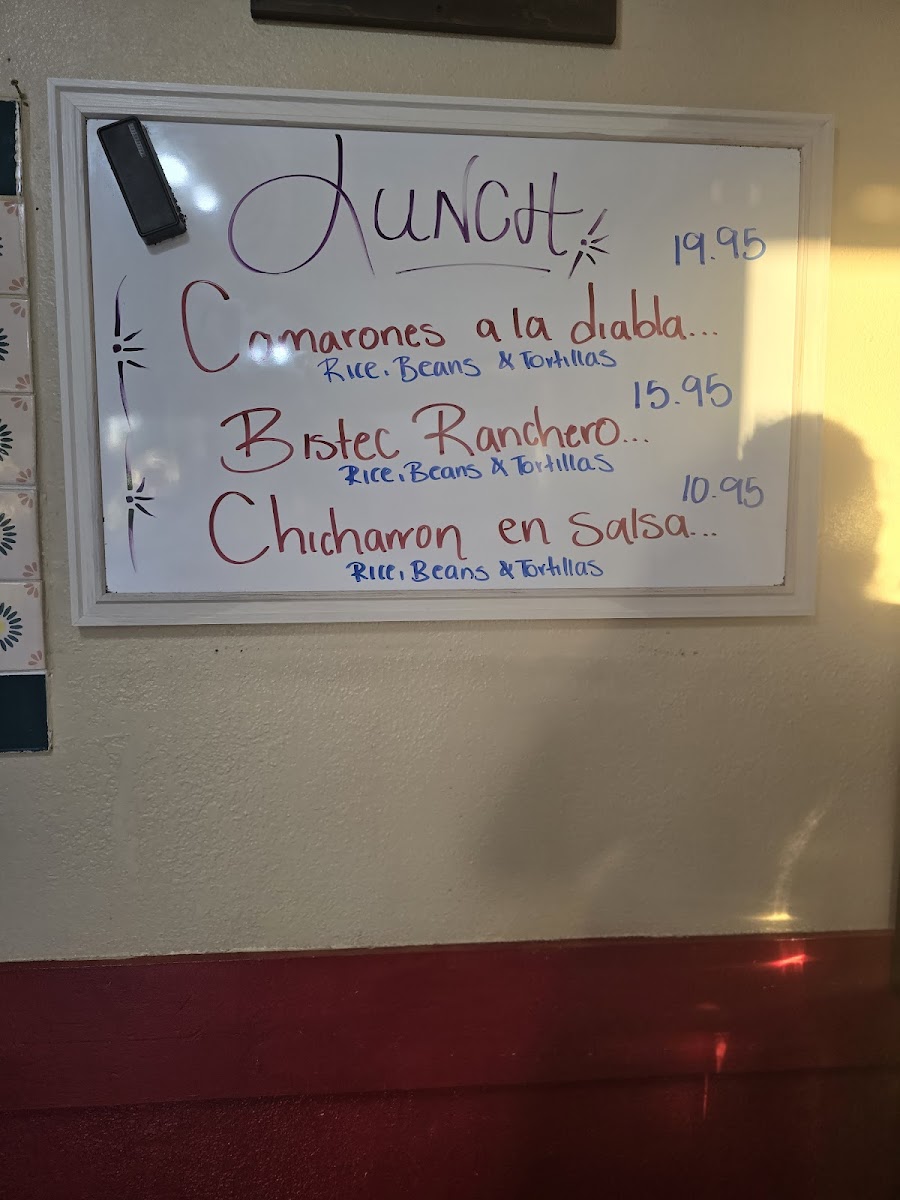 LUNCH
19.95
Camarones a la diabla...
Rice, Beans & Tortillas
15.95
Bistec Ranchero...
Rice, Beans & Tortillas
10.95
Chicharron en Salsa...
Rice, Beans & Tortillas